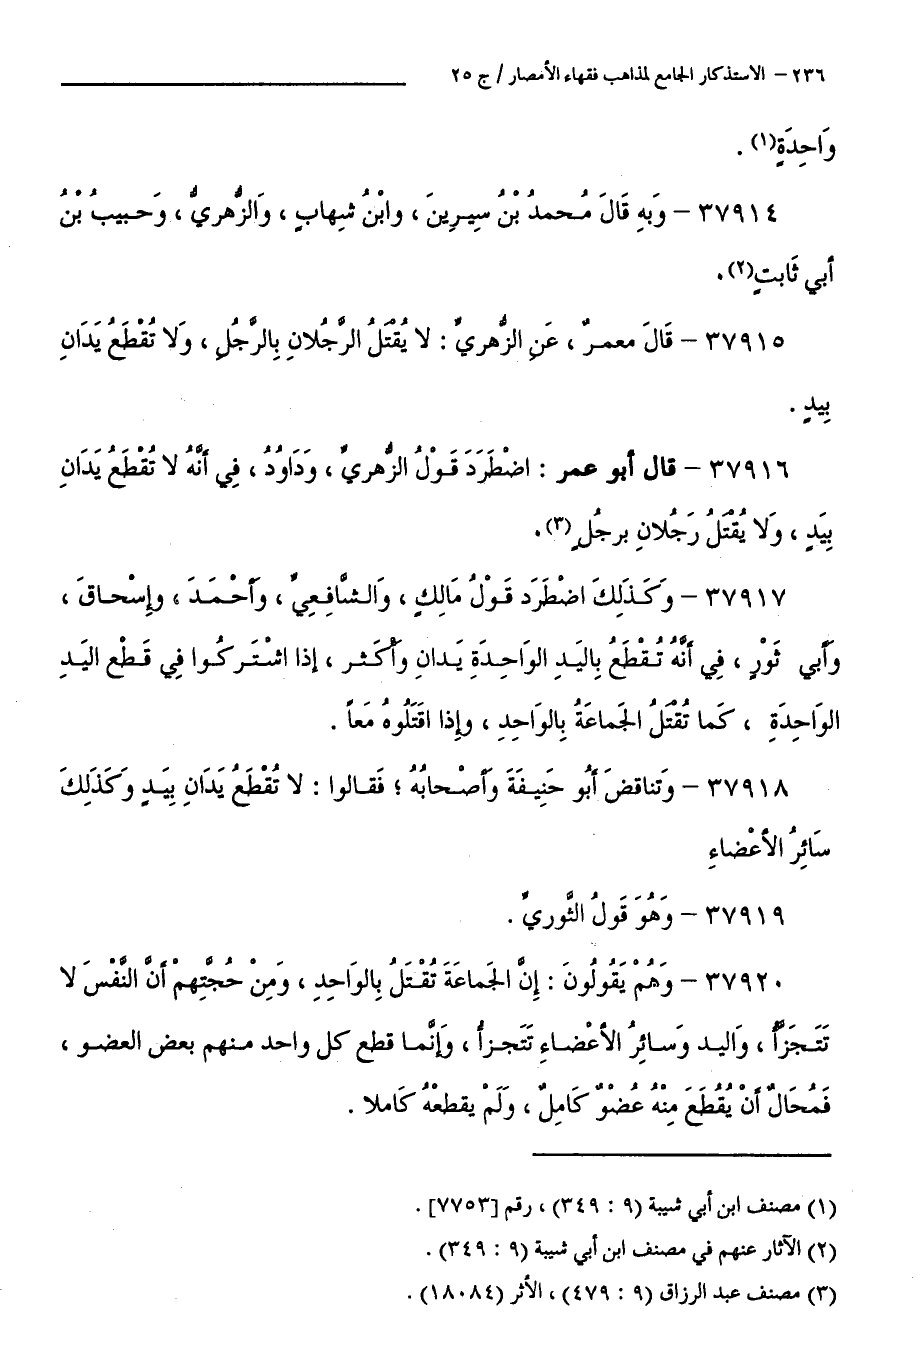 ٢٣٦ – الاستذكار الجامع لمذاهب فقهاء الأمصار / ج ٢٥
وَاحِدَةٍ(١) .
٣٧٩١٤ – وَبِهِ قَالَ مُحمدُ بْنُ سيرِينَ ، وابْنُ شهابٍ ، وَالزُّهريُّ ، وَحبيبُ بْنُ
أبي ثَابتٍ(٢).
٣٧٩١٥ – قَالَ معمرٌ ، عَنِ الزُّهريِّ : لا يُقْتَلُ الرَّجُلانِ بِالرَّجُلِ ، ولَا تُقْطَعُ يَدَانِ
بِيدٍ .
٣٧٩١٦ – قال أبو عمر : اضْطَرَدَ قَوْلُ الزهريِّ ، وَدَاودُ ، فِي أنَّهُ لا تُقْطَعُ يَدَانِ
بِيَدٍ ، ولَا يُقْتَلُ رَجُلانِ برجُلٍ(٣).
٣٧٩١٧ – وَكَذَلِكَ اضْطَرَد قَولُ مَالِكٍ ، وَالشَّافِعيِّ ، وَأَحْمَدَ ، وإِسْحاقَ ،
وَأبي ثَوْرٍ ، فِي أنَّهُ تُقْطَعُ بِاليَدِ الوَاحِدَةِ يَدانِ وأَكْثَر ، إذا اشْتَركُوا فِي قَطْعِ اليَدِ
الوَاحِدَةِ ، كَما تُقْتَلُ الجَماعَةُ بِالوَاحِدِ ، وإذا اقَتَلُوهُ مَعاً .
٣٧٩١٨ – وَتناقضَ أبُو حَنِيفَةَ وَأصْحابُهُ ؛ فَقالوا : لا تُقْطَعُ يَدَانِ بِيَدٍ وكَذَلِكَ
سَائِرُ الأعْضاءِ
٣٧٩١٩ – وَهُوَ قَولُ الثَّوريِّ .
٣٧٩٢٠ – وَهُمْ يَقُولُونَ : إنَّ الجَماعَةَ تُقْتَلُ بِالوَاحِدِ ، ومِنْ حُجَّتِهمْ أنَّ النَّفْسَ لا
تَتَجَزَّأُ ، وَاليد وَسائِرُ الأعْضاءِ تَتَجزأُ ، وَإنَّما قطع كل واحد منهم بعض العضو ،
فَمُحَالٌ أنْ يُقْطَعَ مِنْهُ عُضْوٌ كَامِلٌ ، ولَمْ يقطعْهُ كَاملا .
(١) مصنف ابن أبي شيبة (٩ : ٣٤٩) ، رقم [٧٧٥٣] .
(٢) الآثار عنهم في مصنف ابن أبي شيبة (٩ : ٣٤٩) .
(٣) مصنف عبد الرزاق (٩ : ٤٧٩) ، الأثر (١٨٠٨٤) .